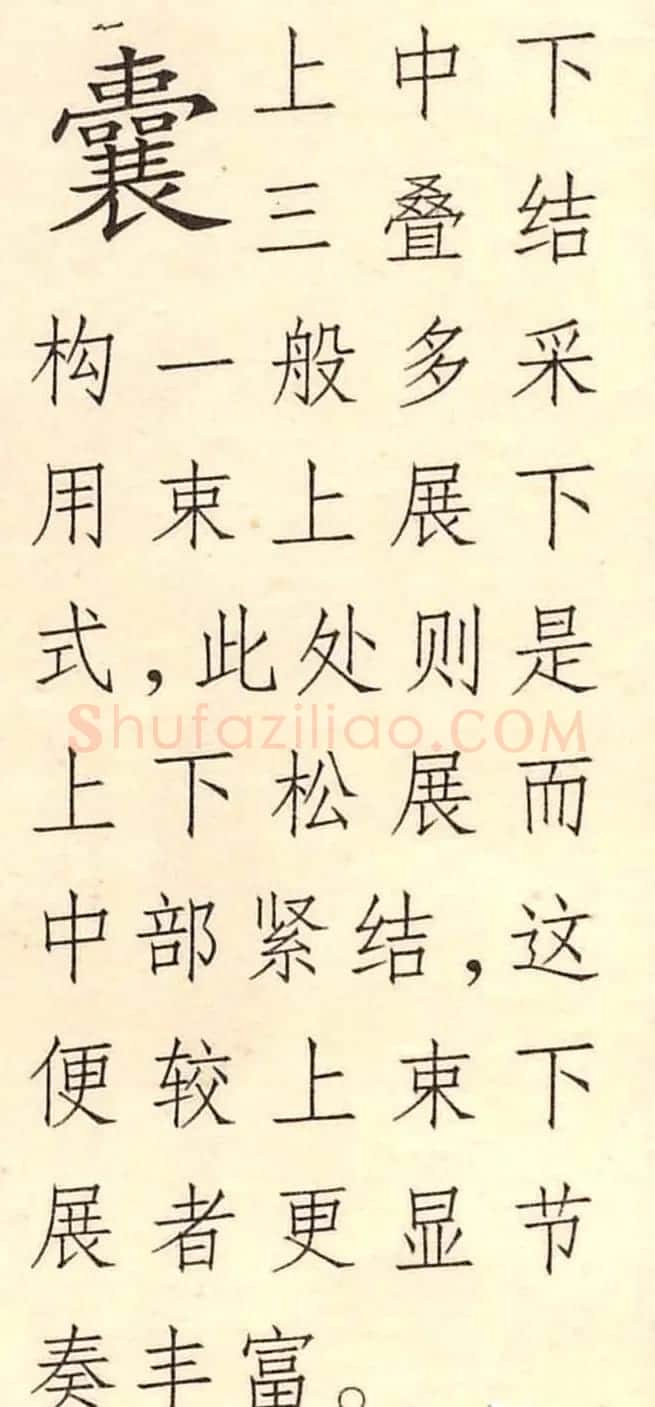 囊 上中下
三叠结
构一般多采
用束上展下
式，此处则是
Shufaziliao.COM
上下松展而
中部紧结，这
便较上束下
展者更显节
奏丰富。